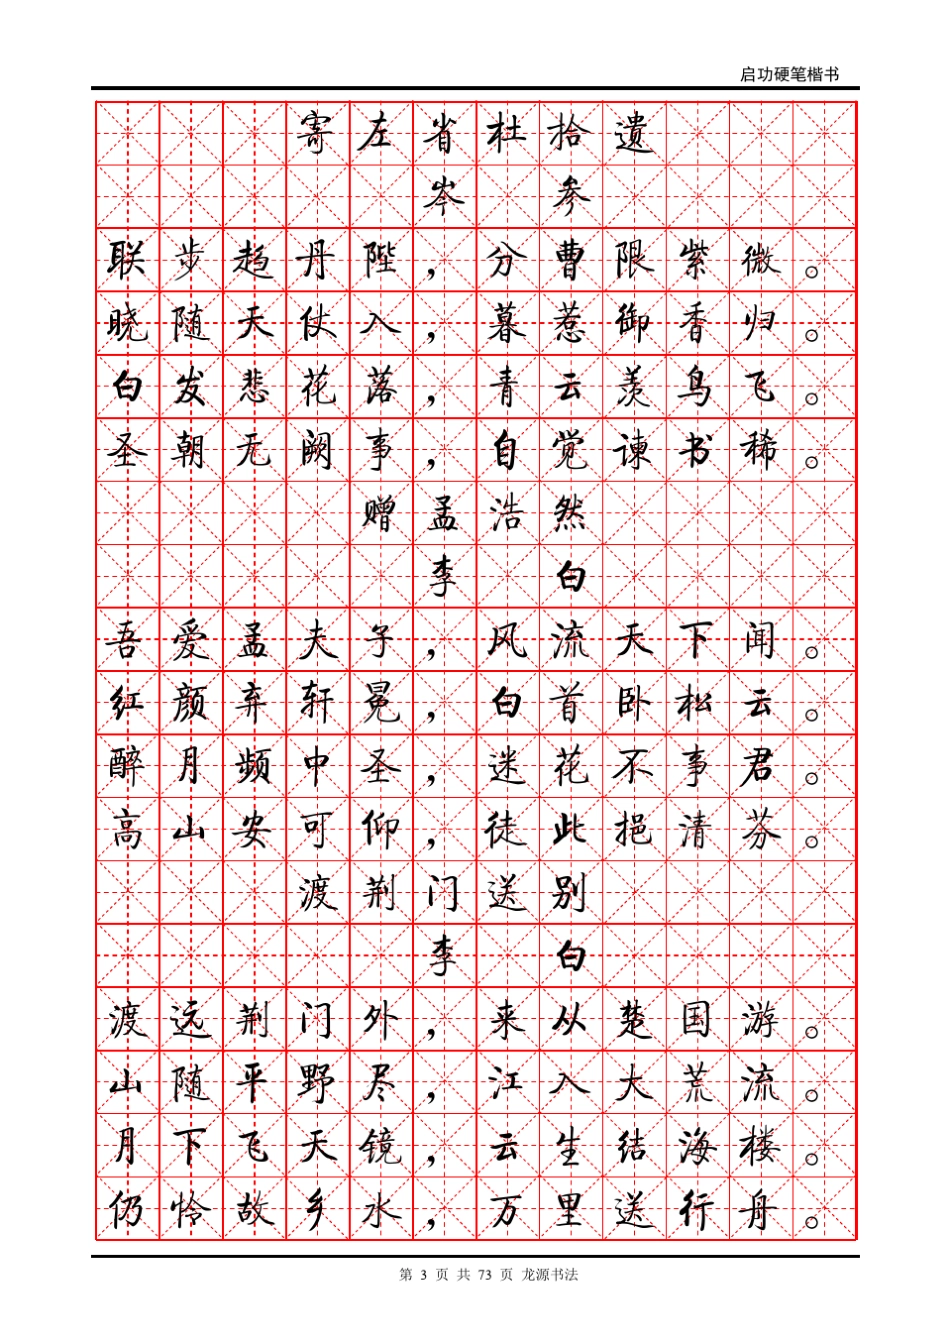 启功硬笔楷书
寄左省杜拾遗
岑 参
联步趋丹陛，分曹限紫微。
晓随天仗入，暮惹御香归。
白发悲花落，青云羡鸟飞。
圣朝无阙事，自觉谏书稀。
赠孟浩然
李 白
吾爱孟夫子，风流天下闻。
红颜弃轩冕，白首卧松云。
醉月频中圣，迷花不事君。
高山安可仰，徒此挹清芬。
渡荆门送别
李 白
渡远荆门外，来从楚国游。
山随平野尽，江入大荒流。
月下飞天镜，云生结海楼。
仍怜故乡水，万里送行舟。
第 3 页 共 73 页 龙源书法